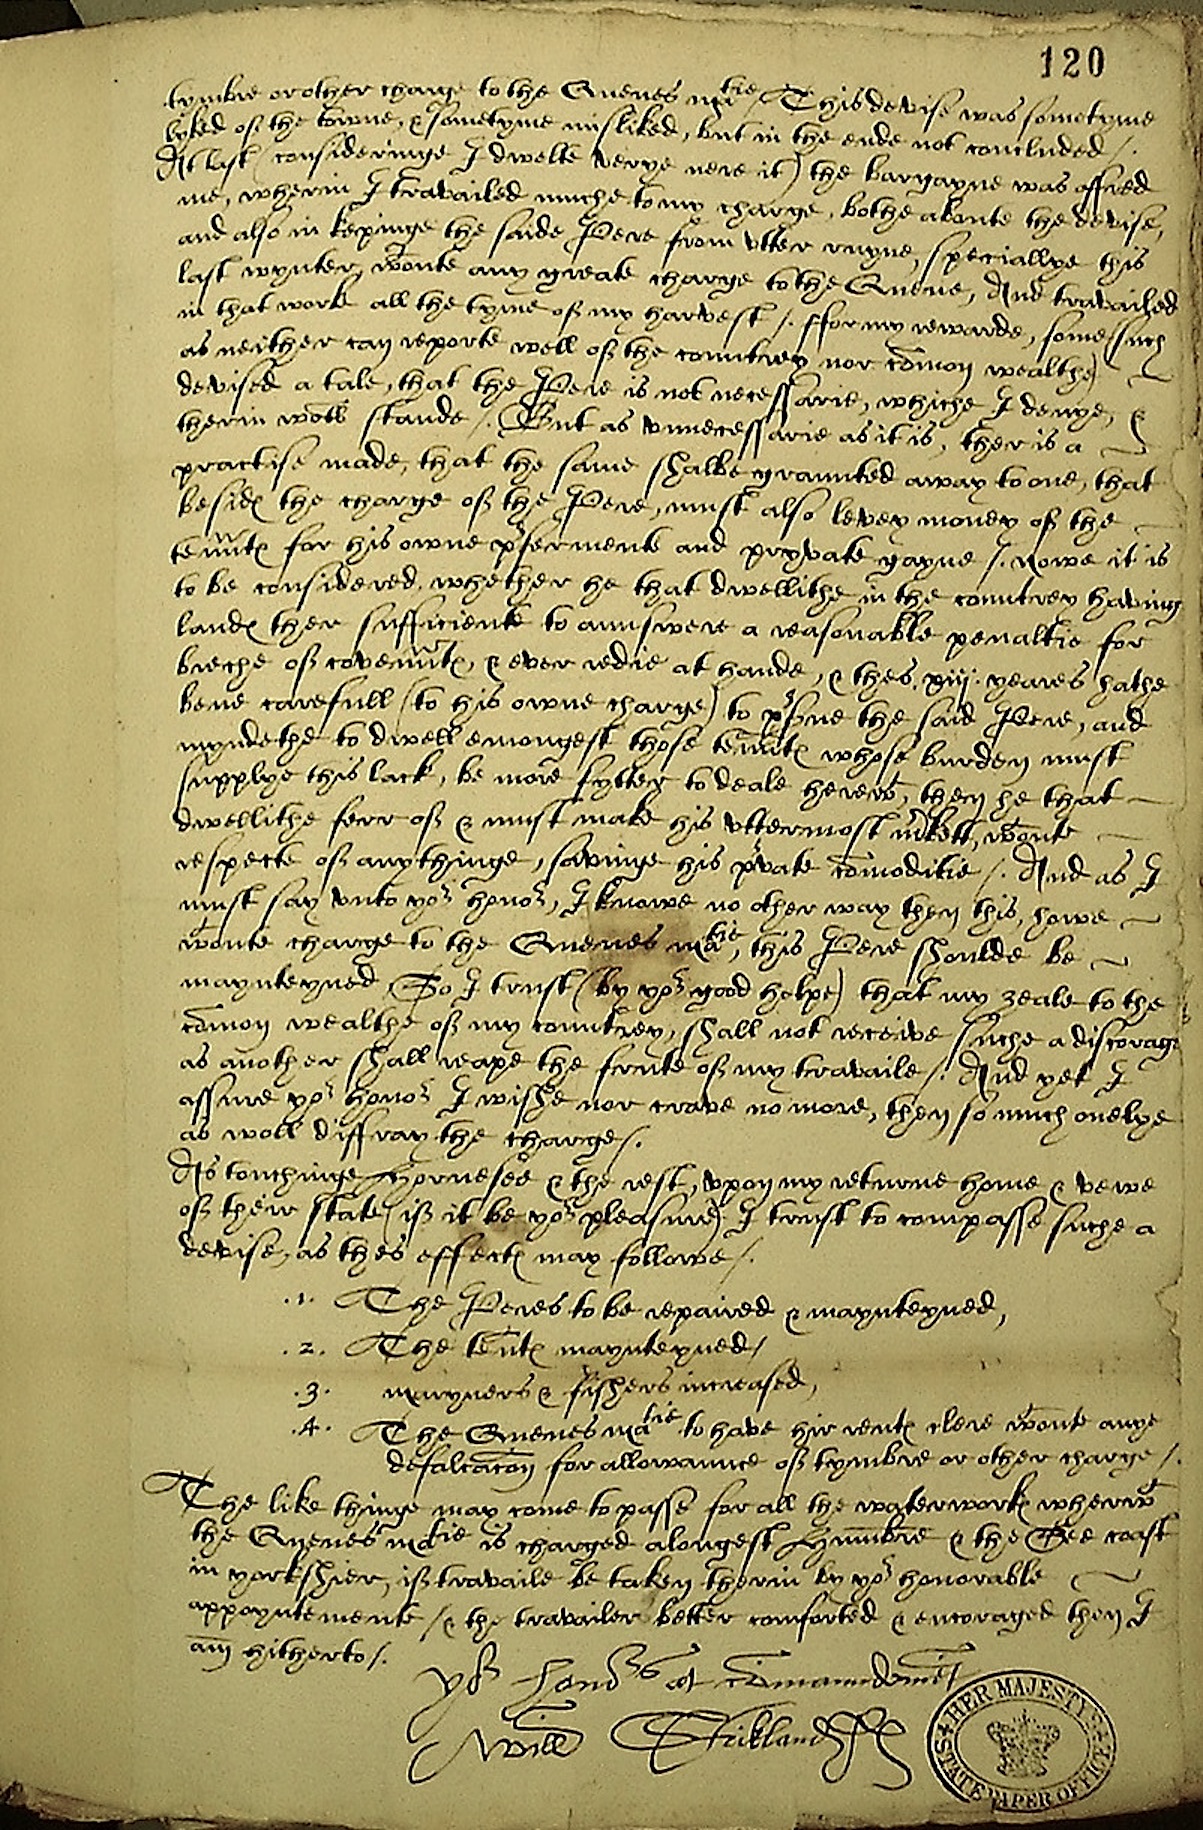 120
tymbre or other charge to the Quenes matie / This devise was sometyme
lyked of the towne, & sometyme misliked, but in the ende not concluded /.
At last (consideringe I dwelte verye nere it) the bargayne was offred
me, wherin I travailed muche to my charge, bothe aboute the devise,
and also in kepinge the saide Pere from vtter ruyne, speciallye this
last wynter, wtoute any greate charge to the Quene, And travailed
in that work all the tyme of my harvest /. ffor my rewarde, some (such
as neither can reporte well of the countrey nor comon wealthe)
devised a tale, that the Pere is not necessarie, whiche I denye, &
therin woll stande /. But as vnnecessarie as it is, ther is a
practise made, that the same shalbe graunted away to one, that
besides the charge of the Pere, must also levey money of the
tennts for his owne pfermente and pryvate gayne /. Nowe it is
to be considered, whether he that dwellithe in the countrey having
landes ther sufficiente to aunswere a reasonable penaltie for
breche of covennts, & ever redie at hande, & thes xiij yeares hathe
bene carefull (to his owne charge) to pserve the said Pere, and
myndethe to dwell emongest those tennts whose burden must
supplye this lack, be more fytter to deale herewt, then he that
dwellithe ferr of & must make his vttermost mrkett, wtoute
respecte of any thinge, savinge his pvate comoditie /. And as I
must say vnto yor honor, I knowe no other way then this, howe
wtoute charge to the Quenes matie, this Pere shoulde be
maynteyned, So I trust (by yor good helpe) that my zeale to the
comon wealthe of my countrey, shall not receive suche a discorage
as another shall reape the frute of my travaile /. And yet I
assure yor honor I wishe nor crave no more, then so much onelye
as woll diffray the charge /.
As touchinge Hornesee & the rest, vpon my returne home & vewe
of their state (if it be yor pleasure) I trust to compasse suche a
devise, as thes effects may followe /.
.1. The Peres to be repaired & maynteyned,
.2. The tennts maynteyned /
.3. maryners & fishers increased,
.4. The Quenes matie to have hir rents clere wtoute anye
defalcacon for allowaunce of tymbre or other charge /.
The like thinge may come to passe for all the waterworks wherewt
the Quenes matie is charged alongest Humbre & the See coast
in yorkshier, if travaile be taken therin by yor honorable
appoyntemente / & the travailer better comforted & encoraged then I
am hitherto /.
yor honors at comaundment
Will Strikland
HER MAJESTY'S STATE PAPER OFFICE